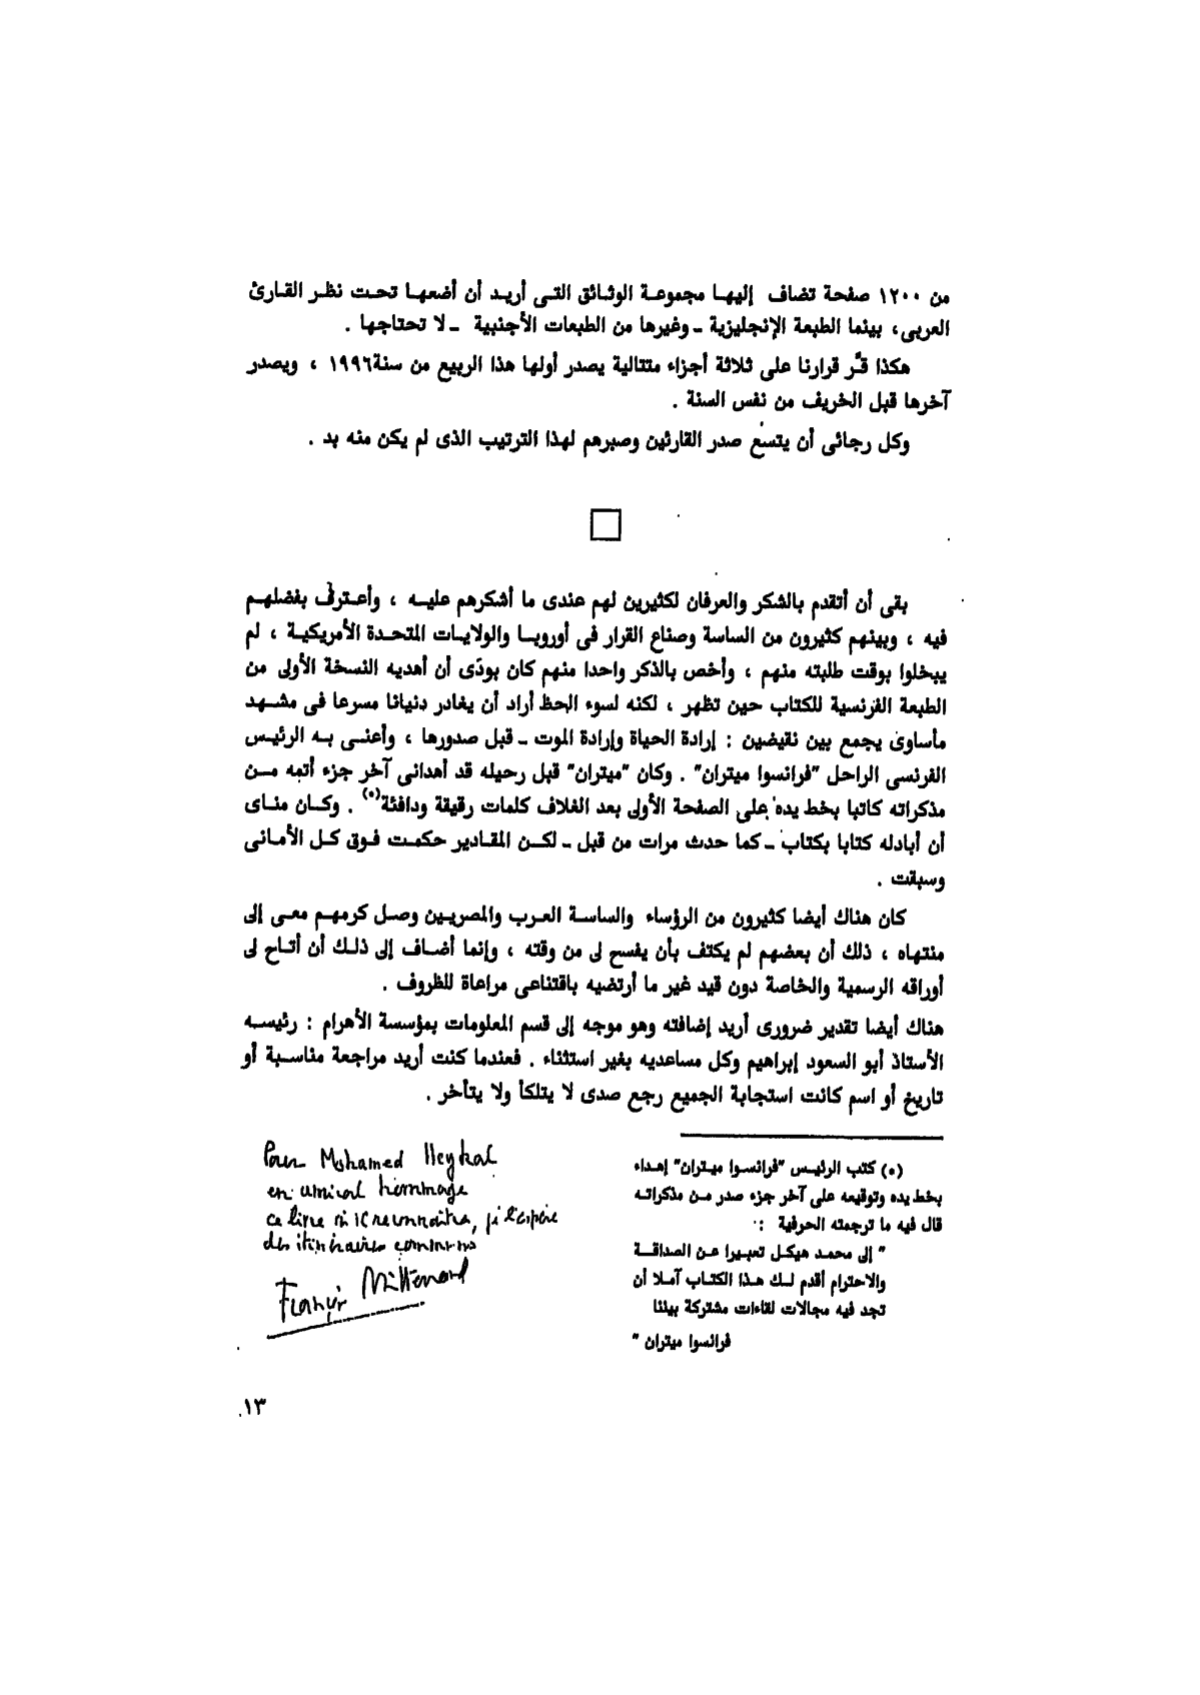 من ١٢٠٠ صفحة تضاف إليهـا مجموعـة الوثـائق التـى أريـد أن أضعهـا تحـت نظـر القـارئ
العربى، بينما الطبعة الإنجليزية ـ وغيرها من الطبعات الأجنبية ـ لا تحتاجها .
هكذا قـَّر قرارنا على ثلاثة أجزاء متتالية يصدر أولها هذا الربيع من سنة١٩٩٦ ، ويصدر
آخرها قبل الخريف من نفس السنة .
وكل رجائى أن يتسع صدر القارئين وصبرهم لهذا الترتيب الذى لم يكن منه بد .
بقى أن أتقدم بالشكر والعرفان لكثيرين لهم عندى ما أشكرهم عليـه ، وأعـترف بفضلهـم
فيه ، وبينهم كثيرون من الساسة وصناع القرار فى أوروبـا والولايـات المتحـدة الأمريكيـة ، لم
يبخلوا بوقت طلبته منهم ، وأخص بالذكر واحدا منهم كان بودّى أن أهديه النسخة الأولى من
الطبعة الفرنسية للكتاب حين تظهر ، لكنه لسوء الحظ أراد أن يغادر دنيانا مسرعا فى مشـهد
مأساوى يجمع بين نقيضين : إرادة الحياة وإرادة الموت ـ قبل صدورها ، وأعنـى بـه الرئيـس
الفرنسى الراحل "فرانسوا ميتران" . وكان "ميتران" قبل رحيله قد أهدانى آخر جزء أتمه مـن
مذكراته كاتبا بخط يده على الصفحة الأولى بعد الغلاف كلمات رقيقة ودافئة(*) . وكـان منـاى
أن أبادله كتابا بكتاب ـ كما حدث مرات من قبل ـ لكـن المقـادير حكمـت فـوق كـل الأمـانى
وسبقت .
كان هناك أيضا كثيرون من الرؤساء والساسـة العـرب والمصريـين وصـل كرمهـم معـى إلى
منتهاه ، ذلك أن بعضهم لم يكتف بأن يفسح لى من وقته ، وإنما أضـاف إلى ذلـك أن أتـاح لى
أوراقه الرسمية والخاصة دون قيد غير ما أرتضيه باقتناعى مراعاة للظروف .
هناك أيضا تقدير ضرورى أريد إضافته وهو موجه إلى قسم المعلومات بمؤسسة الأهرام : رئيسـه
الأستاذ أبو السعود إبراهيم وكل مساعديه بغير استثناء . فعندما كنت أريد مراجعة مناسـبة أو
تاريخ أو اسم كانت استجابة الجميع رجع صدى لا يتلكأ ولا يتأخر .
(*) كتب الرئيـس "فرانسـوا ميـتران" إهـداء
بخط يده وتوقيعه على آخر جزء صدر مـن مذكراتـه
قال فيه ما ترجمته الحرفية :
" إلى محمـد هيكـل تعبـيرا عـن الصداقـة
والاحترام أقدم لـك هـذا الكتـاب آمـلا أن
تجد فيه مجالات لقاءات مشتركة بيننا
فرانسوا ميتران "
Pour Mohamed Heykal
en amical hommage
ce livre où il reconnaîtra, je l'espère
des itinéraires communs
François Mitterrand
١٣